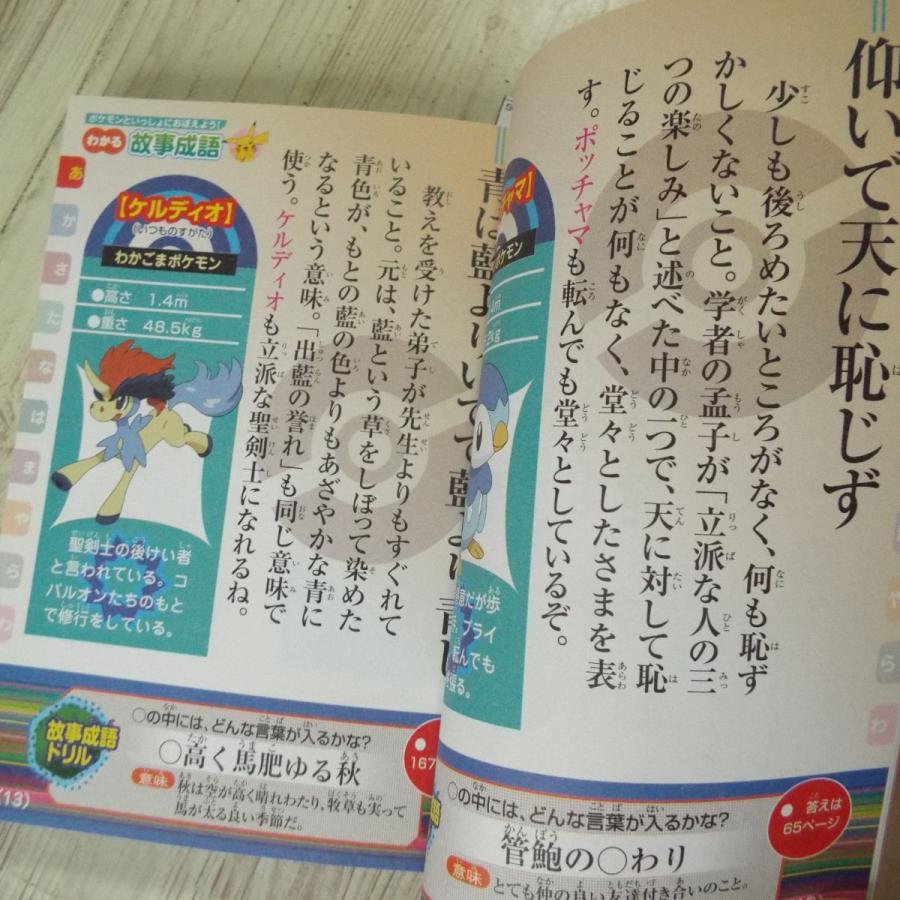 仰いで天に恥じず
少しも後ろめたいところがなく、何も恥ず
かしくないこと。学者の孟子が「立派な人の三
つの楽しみ」と述べた中の一つで、天に対して恥
じることが何もなく、堂々としたさまを表
す。ポッチャマも転んでも堂々としているぞ。
ャマ】
ポケモン
だが歩
プライ
んでも
張る。
○の中には、どんな言葉が入るかな?
管鮑の○わり
意味
とても仲の良い友達付き合いのこと。
答えは
65ページ
や
ら
わ
ポケモンといっしょにおぼえよう!
わかる 故事成語
青は藍より
教えを受けた弟子が先生よりもすぐれて
いること。元は、藍という草をしぼって染めた
青色が、もとの藍の色よりもあざやかな青に
なるという意味。「出藍の誉れ」も同じ意味で
使う。ケルディオも立派な聖剣士になれるね。
【ケルディオ】
(いつものすがた)
わかごまポケモン
●高さ 1.4m
●重さ 48.5kg
聖剣士の後けい者
と言われている。コ
バルオンたちのもと
で修行をしている。
あ
か
さ
た
な
は
ま
や
ら
わ
故事成語
ドリル
○の中には、どんな言葉が入るかな?
○高く馬肥ゆる秋
意味
秋は空が高く晴れわたり、牧草も実って
馬が太る良い季節だ。
167
(13)